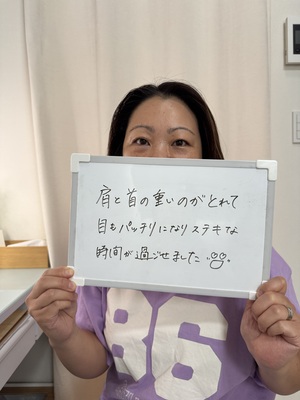 肩と首の重いのがとれて
目もパッチリになりステキな
時間が過ごせました
86